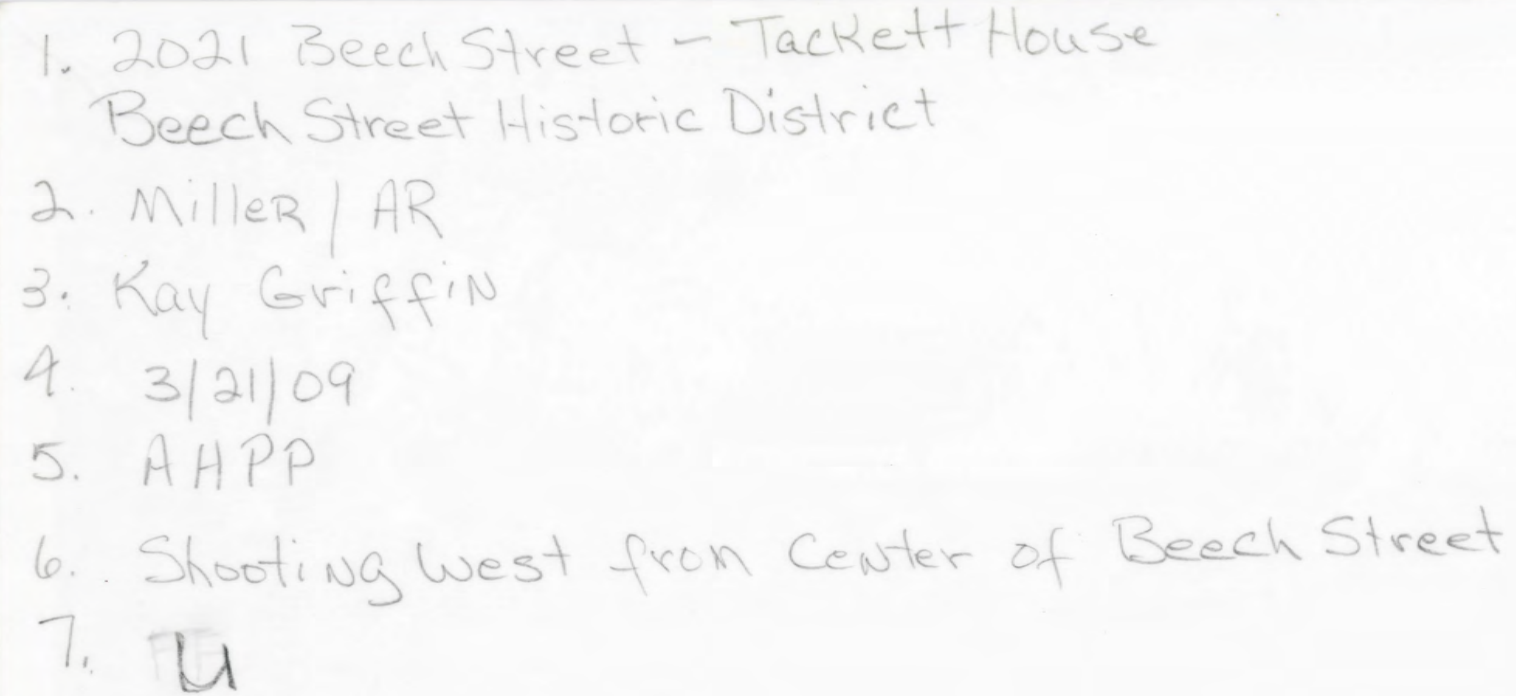 1. 2021 Beech Street - Tackett House
Beech Street Historic District
2. Miller / AR
3. Kay Griffin
4. 3/21/09
5. AHPP
6. Shooting West from Center of Beech Street
7.